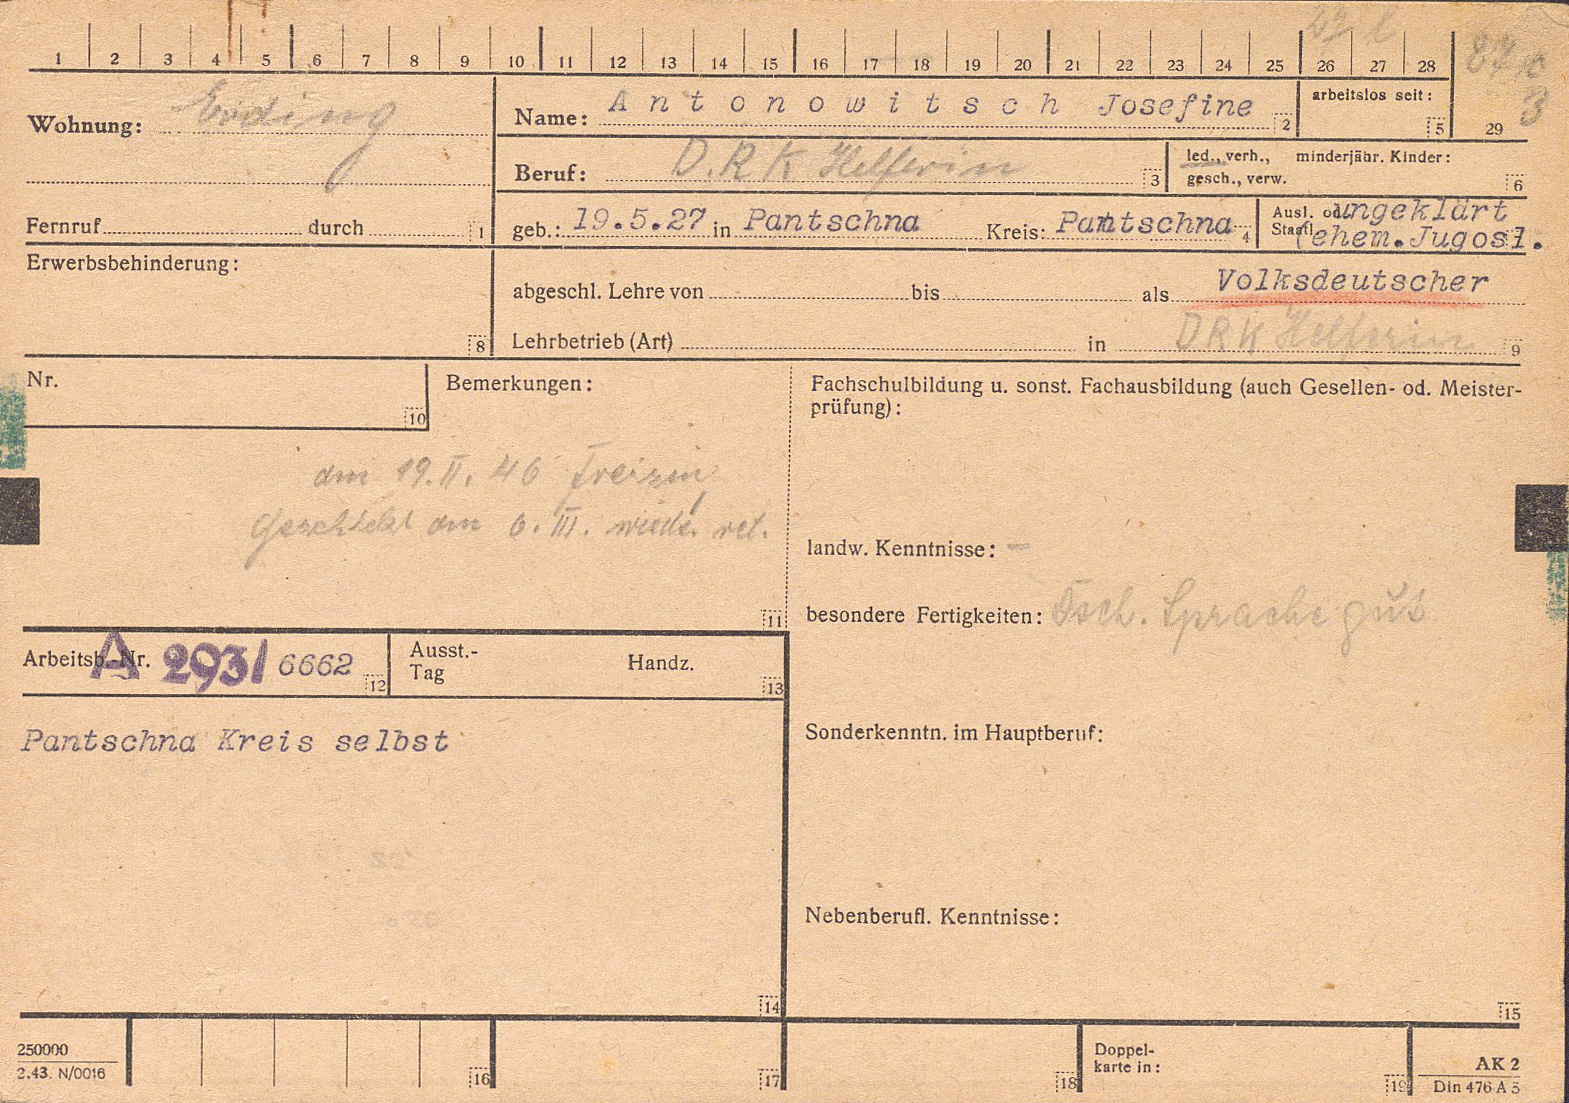 1 2 3 4 5 6 7 8 9 10 11 12 13 14 15 16 17 18 19 20 21 22 23 24 25 26 27 28 29
Wohnung: Erding
Name: Antonowitsch Josefine 2
arbeitslos seit: 5
3
Beruf: D.R.K Helferin 3
led., verh., minderjähr. Kinder:
gesch., verw. 6
Fernruf durch 1
geb.: 19.5.27 in Pantschna Kreis: Pantschna 4
Ausl. od. ungeklärt
Staatl. (ehem. Jugosl.
Erwerbsbehinderung: 8
abgeschl. Lehre von bis als Volksdeutscher
Lehrbetrieb (Art) in DRK Helferin 9
Nr. 10
Bemerkungen:
am 19.II. 46
am 6. III. 11
Fachschulbildung u. sonst. Fachausbildung (auch Gesellen- od. Meister-
prüfung):
landw. Kenntnisse: -
besondere Fertigkeiten: Sprache gut
Arbeitsb.-Nr. A 293/6662 12
Ausst.-
Tag Handz. 13
Pantschna Kreis selbst
14
Sonderkenntn. im Hauptberuf:
Nebenberufl. Kenntnisse:
15
250000
2.43. N/0016
16 17 18
Doppel-
karte in: 19
AK 2
Din 476 A 5